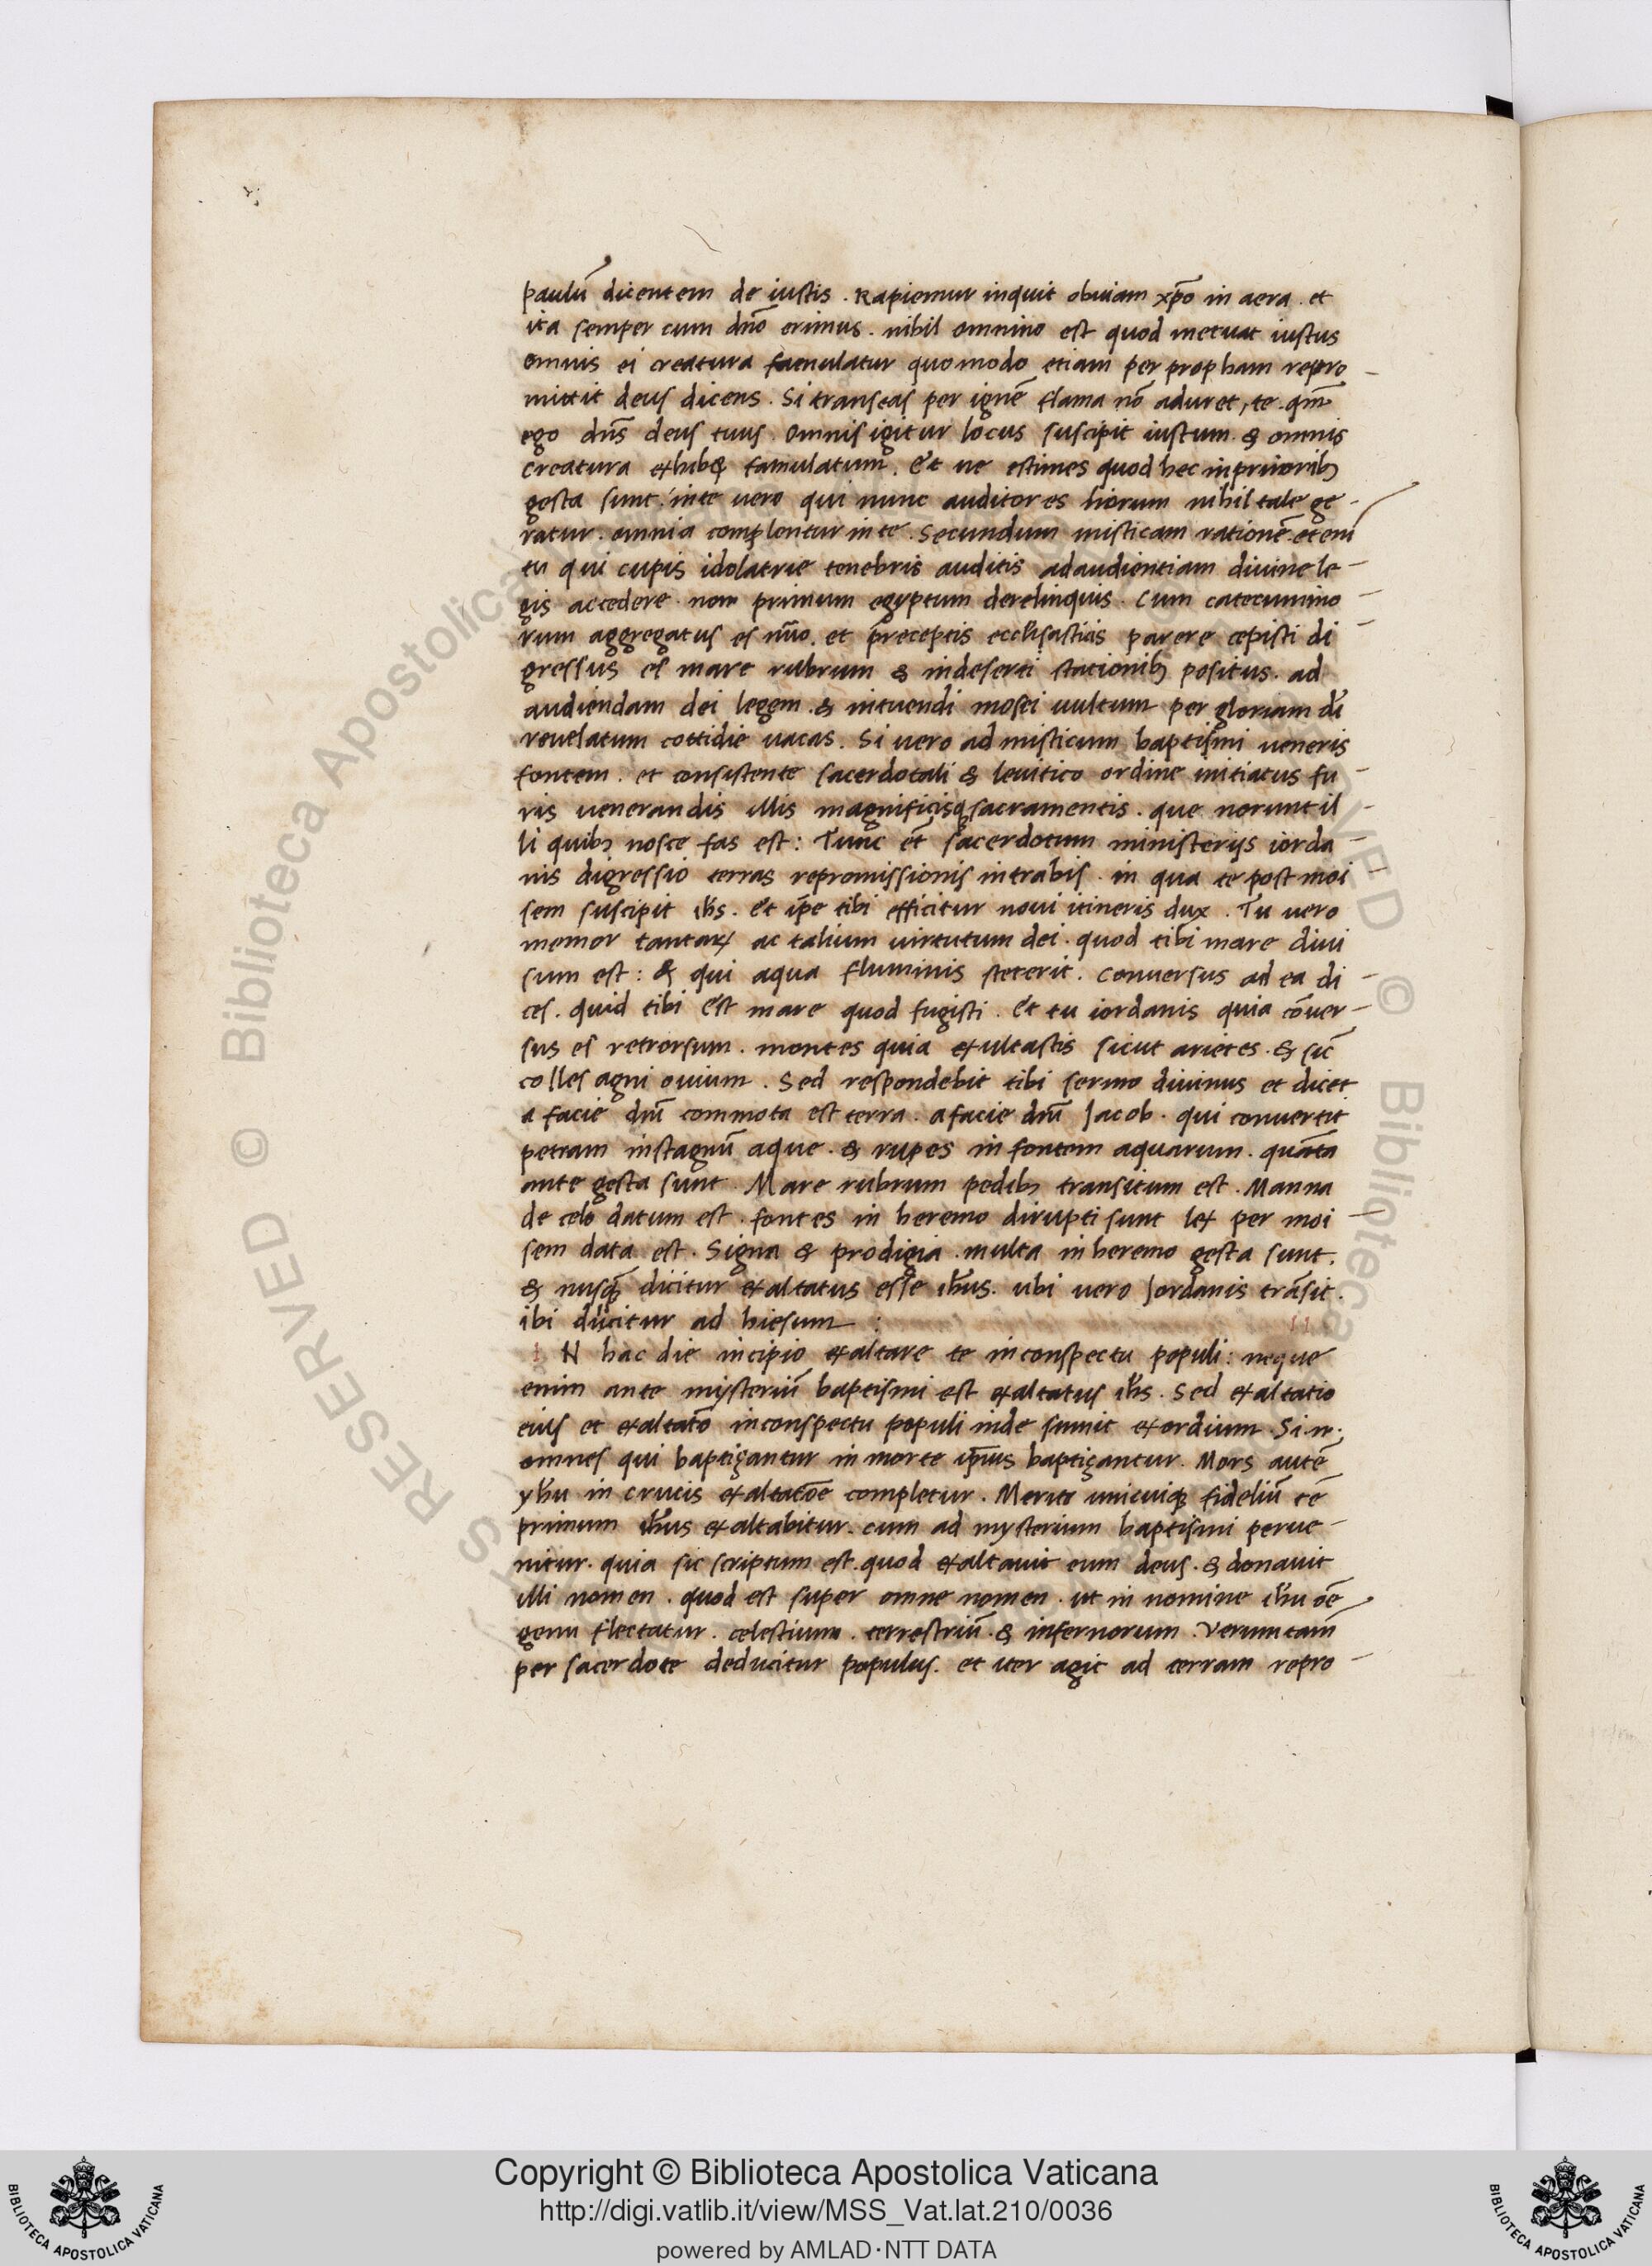 paulū dicentem de iustis. Rapiemur inquit obuiam xp̄o in aera. et
ita semper cum dn̄o erimus. nihil omnino est quod metuat iustus
omnis ei creatura famulatur quomodo etiam per propham repro-
mittit deus dicens. Si transeas per ignē flama nō aduret, te. qm̄
ego dn̄s deus tuus. Omnis igitur locus suscipit iustum. & omnis
creatura exhibꝫ famulatum. Et ne estimes quod hec in priorib;
gesta sunt. in te uero qui nunc auditor es horum nihil tale ge-
ratur. omnia complentur in te. Secundum misticam rationē. etem̄
tu qui cupis idolatrie tenebris auditis ad audientiam diuine le-
gis accedere. non primum egyptum derelinquis. Cum catecumino-
rum aggregatus es nūo. et p̄receptis eccl̄isasticis parere cepisti di-
gressus es mare rubrum & in deserti stationib; positus. ad
audiendam dei legem. & intuendi mosei uultum per gloriam dī
reuelatum cottidie uacas. Si uero ad misticum baptismi ueneris
fontem. et consistente sacerdotali & leuitico ordine initiatus fu-
ris uenerandis illis magnificisq; sacramentis. que norunt il-
li quib; nosce fas est: Tunc et̄ sacerdotum ministerijs iorda-
nis digressio terras repromissionis intrabis. in qua te post moi-
sem suscipit ih̄s. et ip̄e tibi efficitur noui itineris dux. Tu uero
memor tantaꝝ ac talium uirtutum dei. quod tibi mare diui
sum est: & qui aqua fluminis steterit. Conuersus ad ea di-
ces. quid tibi est mare quod fugisti. Et tu iordanis quia cōuer-
sus es retrorsum. montes quia exultastis sicut arietes. & sic̄
colles agni ouium. Sed respondebit tibi sermo diuinus et dicet
a facie dnī commota est terra. a facie dnī Jacob. qui conuertit
petram in stagnū aque. & rupes in fontem aquarum. quāta
ante gesta sunt. Mare rubrum pedib; transitum est. Manna
de celo datum est. fontes in heremo dirupti sunt lex per moi-
sem data est. Signa & prodigia multa in heremo gesta sunt.
& nusq̄ dicitur exaltatus esse ih̄us. ubi uero Jordanis trāsit.
ibi dicitur ad hiesum:
I N hac die incipio exaltare te in conspectu populi: neque
enim ante mysteriū baptismi est exaltatus ih̄s. Sed exaltatio
eius et exaltatō in conspectu populi inde sumit exordium. Si .n.
omnes qui baptizantur in morte ip̄ius baptizantur. Mors autē
yh̄u in crucis exaltatōe completur. Merito unicuiq; fideliū tē
primum ih̄us exaltabitur. cum ad mysterium baptismi perue-
nitur. quia sic scriptum est. quod exaltauit eum deus. & donauit
illi nomen. quod est super omne nomen. ut in nomine ih̄u oē
genu flectatur. celestium. terrestriū. & infernorum. Verumtam̄
per sacerdote deducitur populus. et iter agit ad terram repro-
Copyright © Biblioteca Apostolica Vaticana
http://digi.vatlib.it/view/MSS_Vat.lat.210/0036
powered by AMLAD·NTT DATA